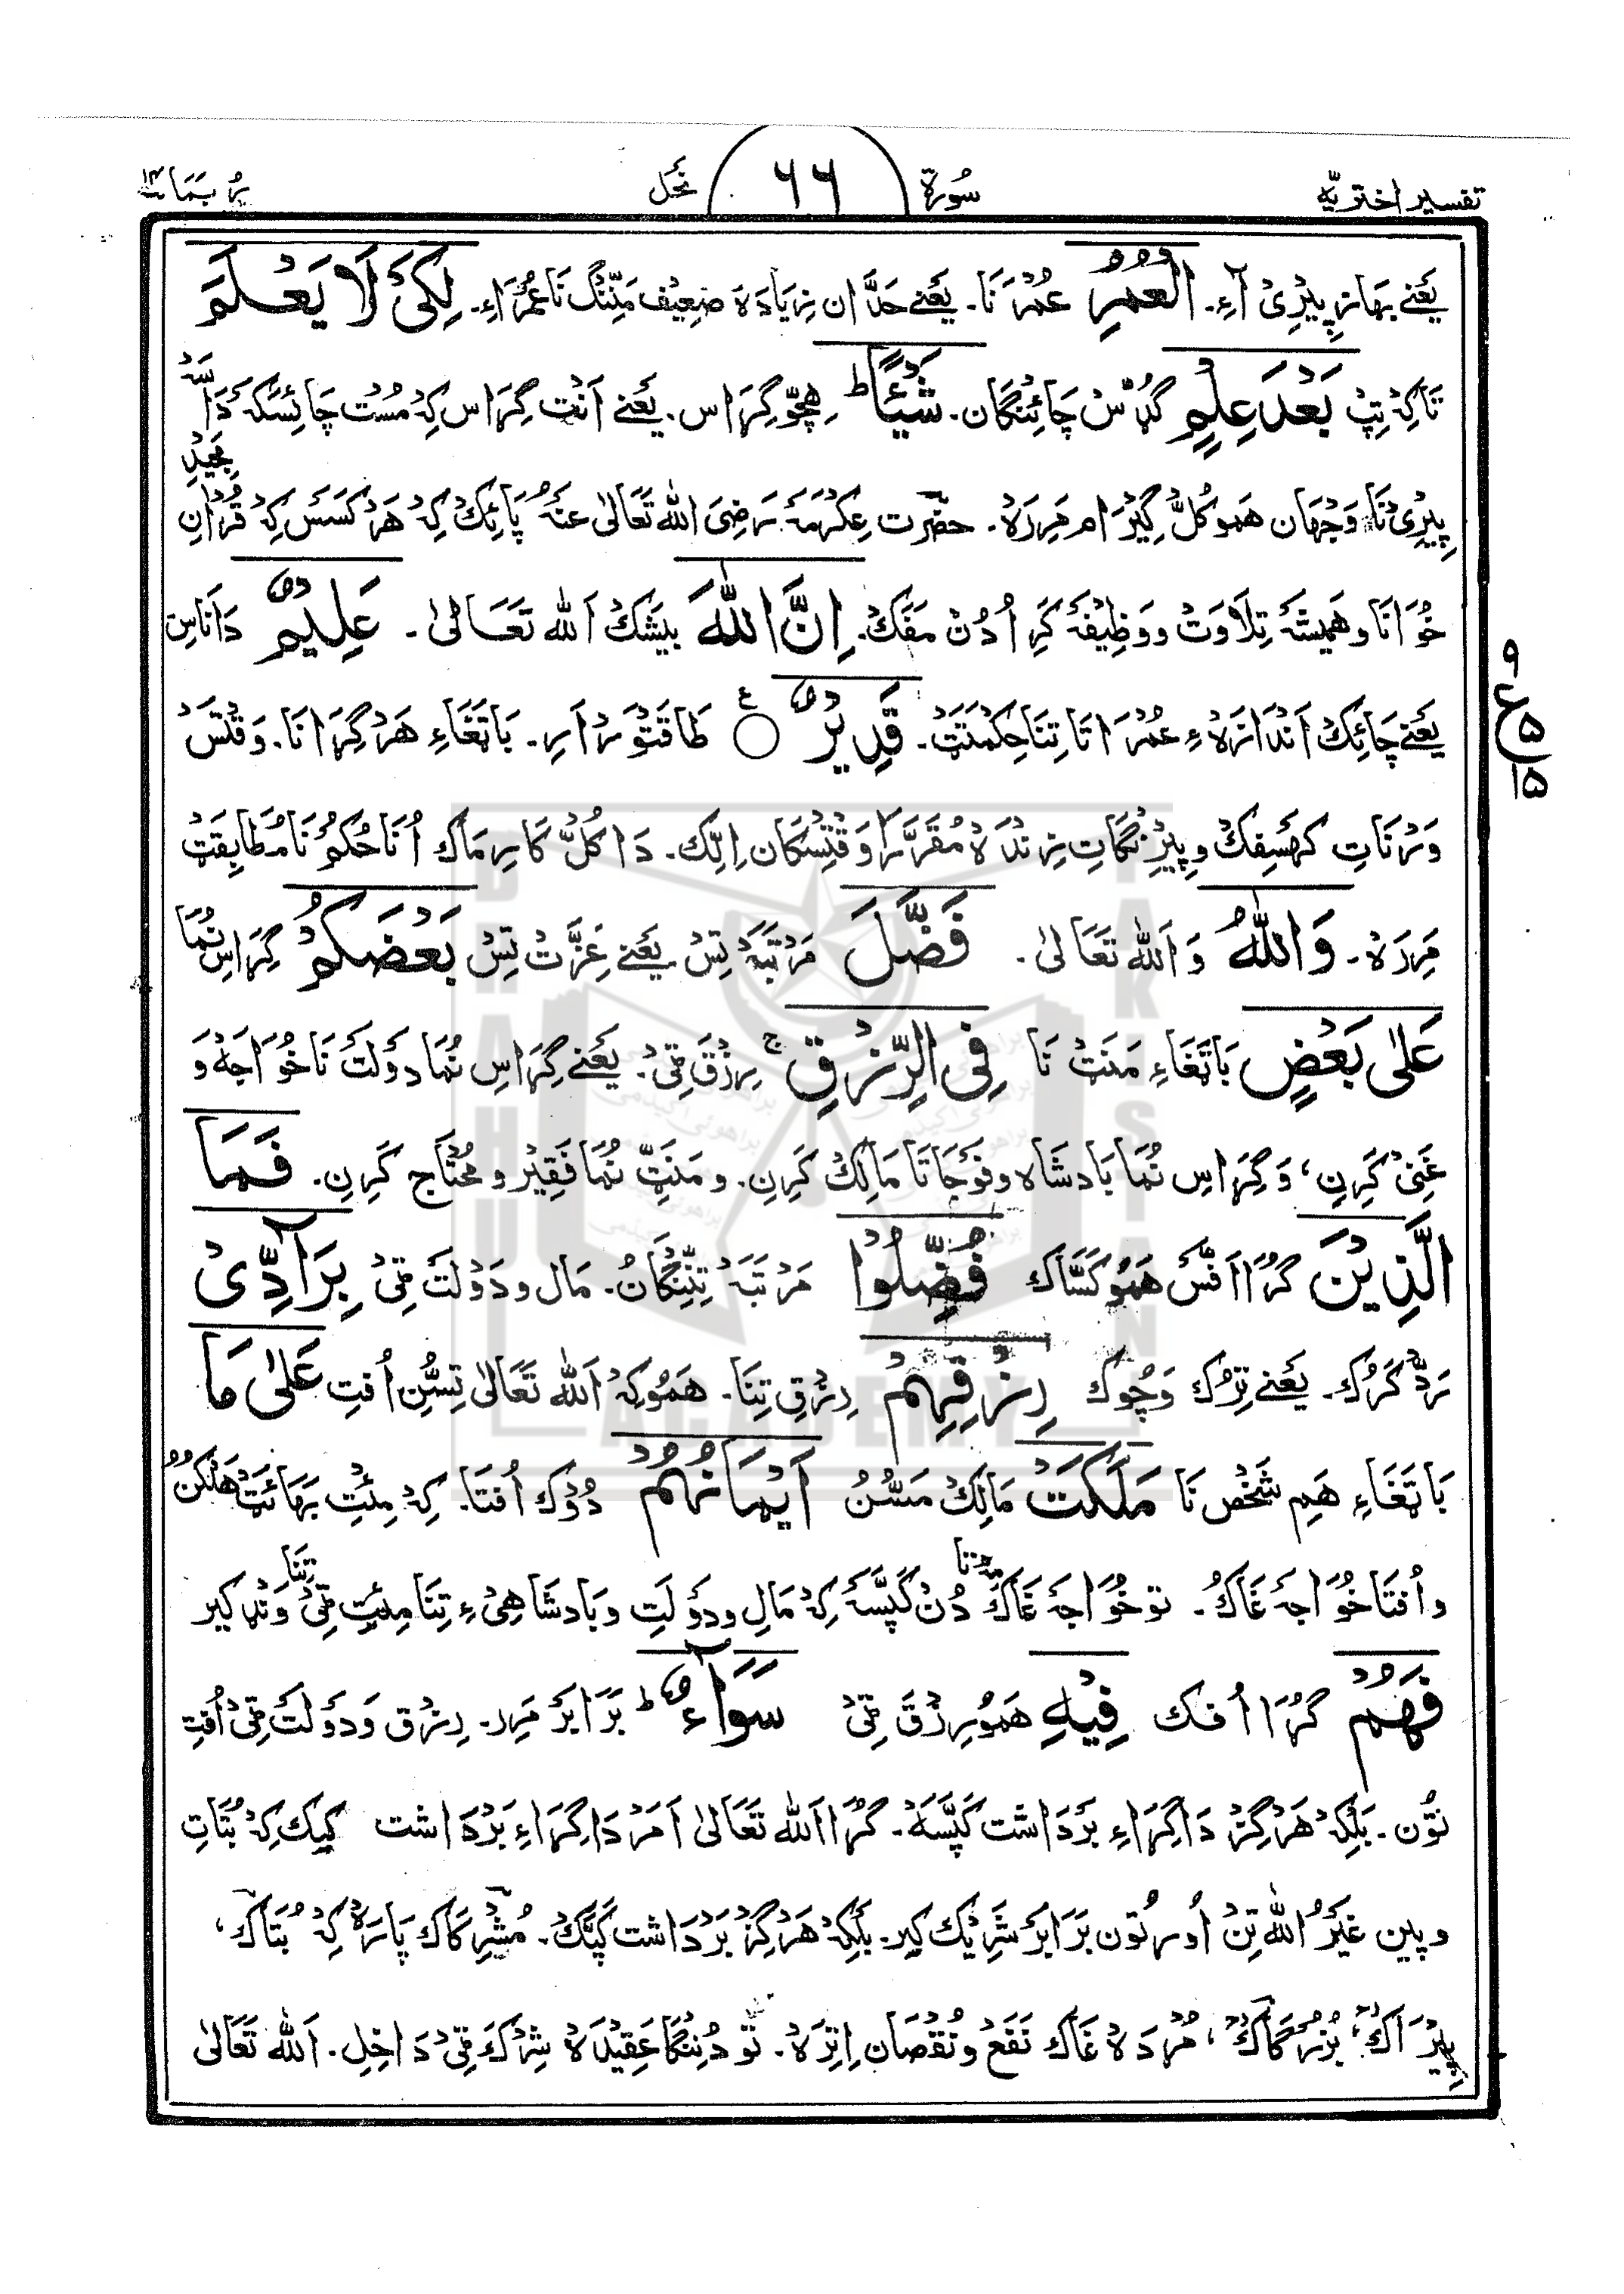 تفسیر اختریّه
سُورة
۶۶
نَحل
رُبَمَا ۱۴
یَعنے بهاز پیرِیْ آءِ. الْعُمُرِ عُمْرَ نَا۔ یَعنے حدَّان زِیَادَه ضَعِیف مَنِّنگ نَا عُمْرَاءِ. لِکَیْ لَا یَعْلَمَ
تَاکِہْ تِپْ بَعْدَ عِلْمٍ گُڈّسْ چَائِنگان. شَیْئًا ط هِچّو گِرَاس. یَعنے اَنْت گِرَاس کِہْ مُسْت چَائِسَّکہْ دَاسَہْ
پِیرِیْ نَا وَجْهَان هَمو کُلّ گِیرَام مَرِرَہْ. حضْرت عِکْرمَہْ رَضِیَ اللّٰهُ تَعَالٰی عَنْهُ پَائِکْ کِہْ هَرْکَسَسْ کِہْ قُرْاٰنِ مَجِیْدِ
خُوَانَا وهَمِیشَہْ تِلَاوَتْ ووَظِیْفَہ کَرِ اُدُنْ مَفَکْ. اِنَّ اللّٰهَ بیشَکْ اَللّٰه تَعَالٰی۔ عَلِیْمٌ دَانَاسِ
یَعنے چَائِکْ اَنْدَازَہْ ءِ عُمْرَاتَا تِنَا حِکْمَتَتْ. قَدِیْرٌ ○ ع طَاقَتْوَرْ اَرِ. بَاتَغَاءِ هَرْ گِرَانَا. وَقْتَسْ
۹
ع ۵
۱۵
وَرْنَاتِ کهَسِفِکْ وپِیْرْنگَاتِ زِنْدَہْ مُقَرَّرَا وَقْتِسْکَان اِلِّک. دَا کُلّ کَارِمَاک اُنَا حُکْمْ نَا مُطَابِقَتْ
مَرِرَہْ. وَاللّٰهُ وَ اَللّٰه تَعَالٰی. فَضَّلَ مَرْتَبَہْ تِسْ یَعنے عِزَّتْ تِسْ بَعْضَکُمْ گِرَاس نُمَا
عَلٰی بَعْضٍ بَاتَغَاءِ مَنَتْ نَا فِی الرِّزْقِ ج رِزْقَ ٹِیْ. یَعنے گِرَاسِ نُمَا دولَتَ نَا خُوَاجَہْ و
غَنِیْ کَرِنِ، وَ گِرَاسِ نُمَا بَادشَاہ وفَوجَاتَا مَالِکْ کَرِنِ. ومَنَتِ نُمَا فَقِیْر و مُحْتَاج کَرِنِ. فَمَا
الَّذِیْنَ گُرَا اَفَسْ هَمُو کَسَّاک فُضِّلُوْا مَرْتَبَہْ تِنِنگَانُ. مَال و دَوْلَتَ ٹِیْ بِرَآدِّیْ
رَدّ کَرُوْک. یَعنے تِرُک وَچُوک رِزْقِهِمْ رِزْقِ تِنَا. هَمُوکِہْ اَللّٰه تَعَالٰی تِسُّنِ اُفتِ عَلٰی مَا
بَاتَغَاءِ هَمِ شَخْص نَا مَلَکَتْ مَالِکْ مَسُّنُ اَیْمَانُهُمْ دُوْک اُفتَا. کِہْ مِئِتِ بَهَائَتْ هَلْکُنُ
واُفتَا خُوَاجہ غَاکُ. تو خُوَاجَہ غَاک مَزنَا دُنْ کَپِسَّہْ کِہْ مَالِ و دوَلَتِ وبَادشَاهِیْ ءِ تِنَا مِئِتِ تِنَا ٹِیْ وَنْڈ کیر
فَهُمْ گُرَا اُفک فِیْهِ هَمُو رِزْقَ ٹِیْ سَوَآءٌ ط بَرَابَر مَرِر. رِزْق وَ دَولَتَ ٹِیْ اُفتِ
تُون. بَلْکِہْ هَرْگِزْ دَا گِرَاءِ بَرْدَاشت کَپِسَّہْ. گُرَا اَللّٰه تَعَالٰی اَمَرْ دَا گِرَاءِ بَرْدَاشت کیک کِہْ بُتَاتِ
وپین غَیْرُ اللّٰه تِنْ اُورتُون بَرَابَر شَرِیْک کیر. بَلْکِہْ هَرْگِزْ بَرْدَاشت کَپَّکْ. مُشْرِکَاک پَارَہْ کِہْ بُتَاک،
پِیْرَاک، بُزُرگَاک، مُرْدَہْ غَاک نَفَعْ و نُقْصَان اِتِرَہْ. تَو دُنِنگَا عَقِیْدَہْ شِرْکَ ٹِیْ دَاخِلِ. اَللّٰه تَعَالٰی
BRAHUI
ACADEMY
PAKISTAN
براهوئی اکیڈمی